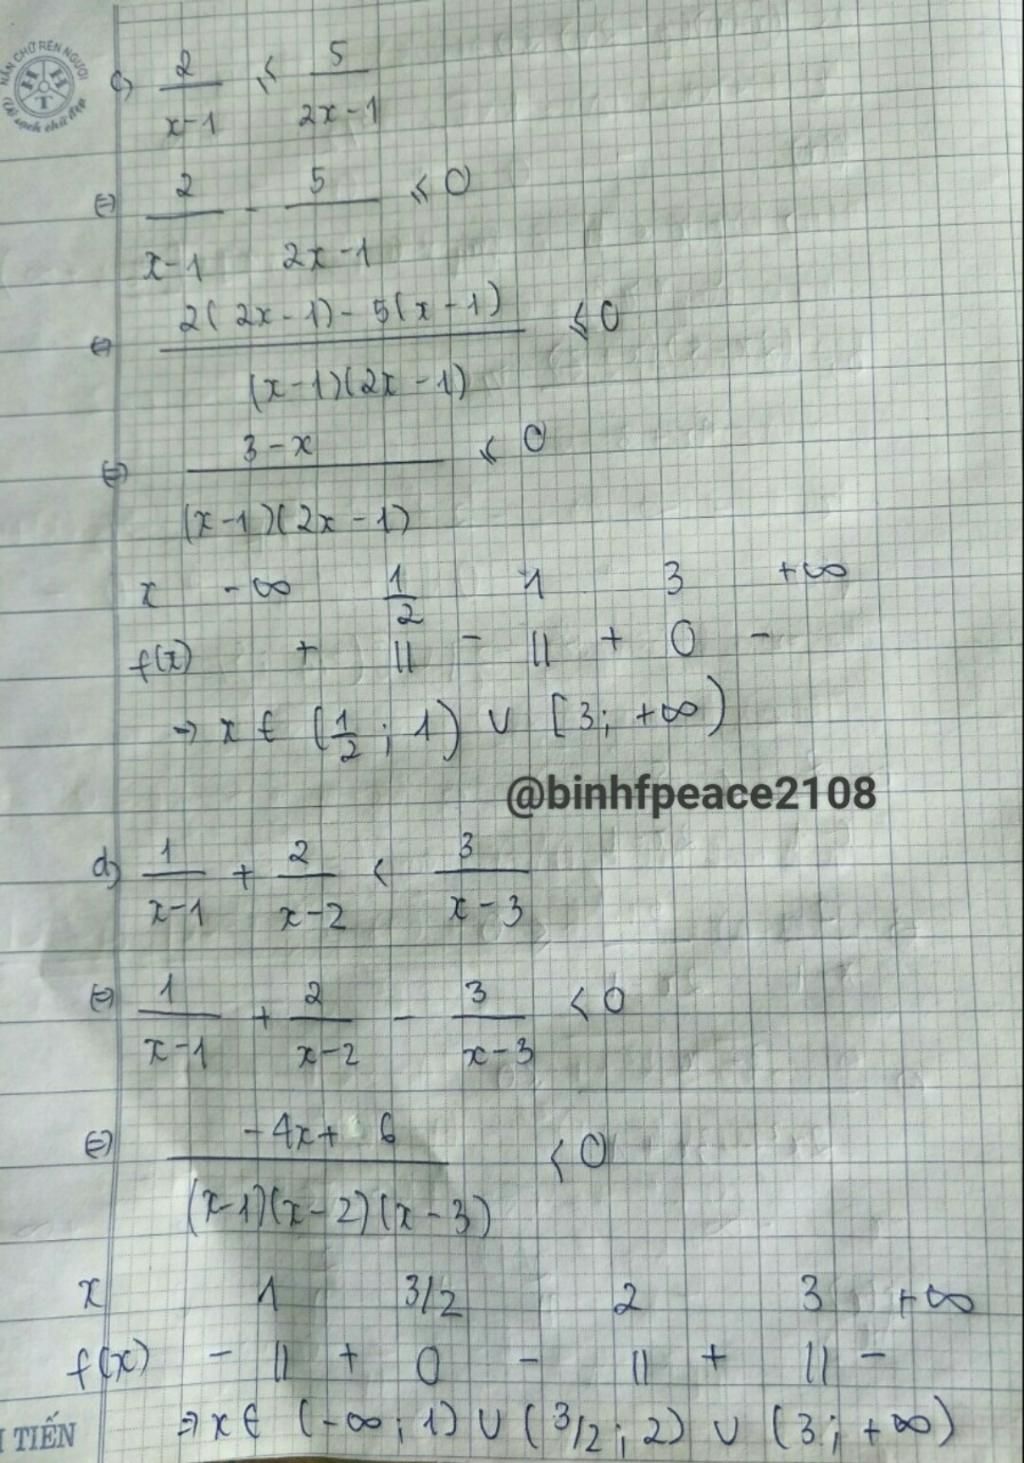 NẮN CHỮ RÈN NGƯỜI
H H T
c) 2/(x-1) ≤ 5/(2x-1)
⇔ 2/(x-1) - 5/(2x-1) ≤ 0
⇔ (2(2x-1) - 5(x-1))/((x-1)(2x-1)) ≤ 0
⇔ (3-x)/((x-1)(2x-1)) ≤ 0
x -∞ 1/2 1 3 +∞
f(x) + || - || + 0 -
→ x ∈ (1/2; 1) ∪ [3; +∞)
@binhfpeace2108
d) 1/(x-1) + 2/(x-2) < 3/(x-3)
⇔ 1/(x-1) + 2/(x-2) - 3/(x-3) < 0
⇔ (-4x+6)/((x-1)(x-2)(x-3)) < 0
x 1 3/2 2 3 +∞
f(x) - || + 0 - || + || -
⇒ x ∈ (-∞; 1) ∪ (3/2; 2) ∪ (3; +∞)
TIẾN